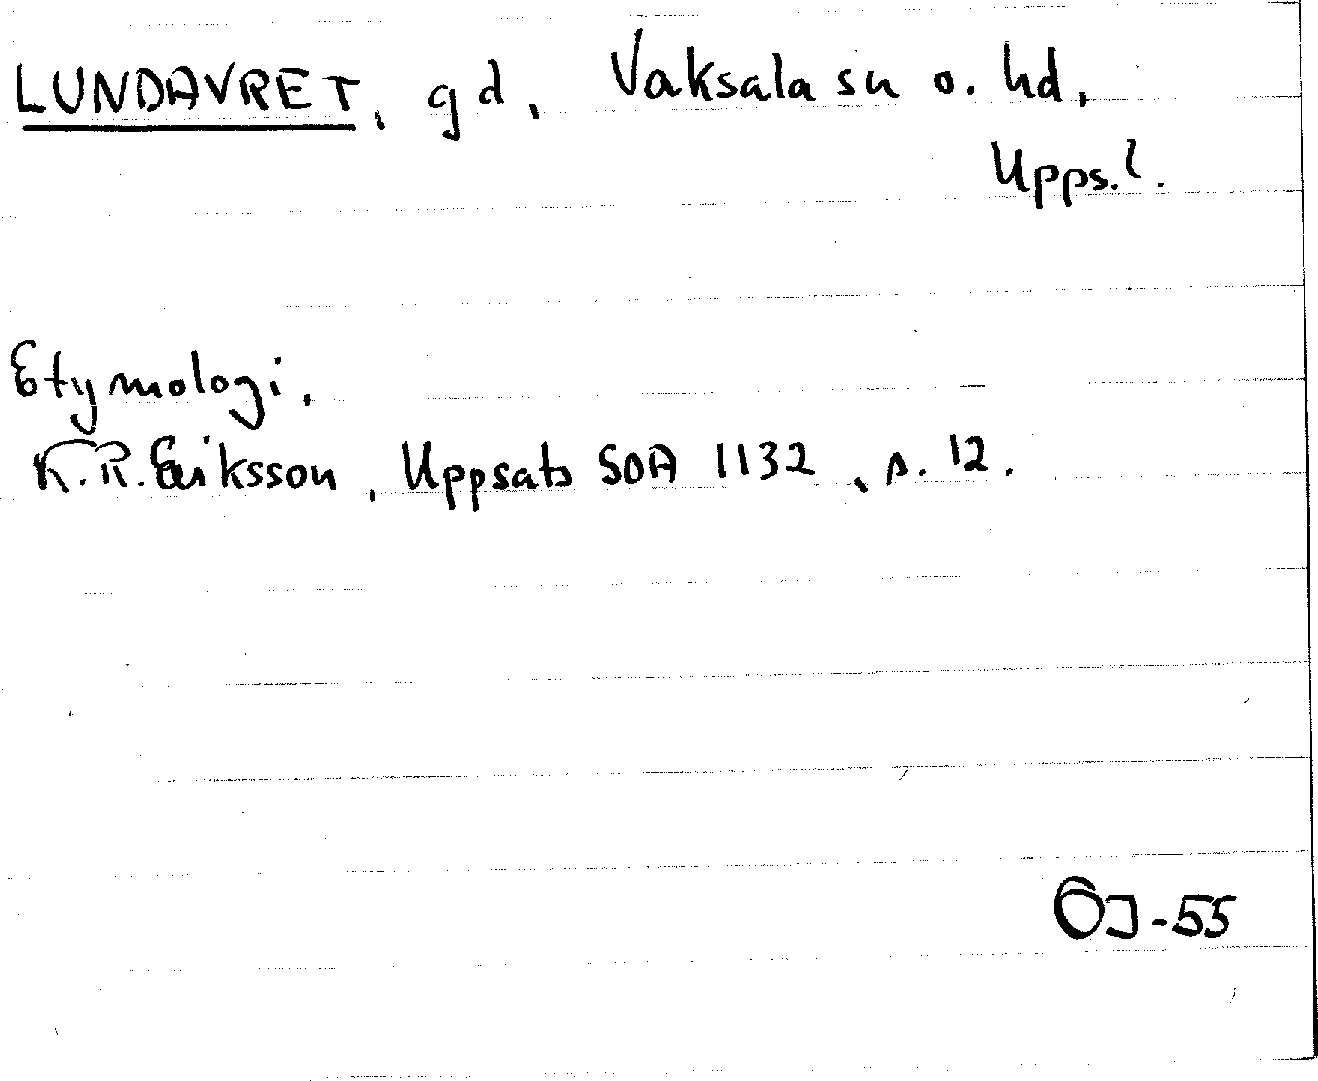 LUNDAVRET, gd, Vaksala sn o. hd,
Upps. l.
Etymologi.
K.R. Eriksson, Uppsats SOA 1132, s. 12.
ÖJ-55